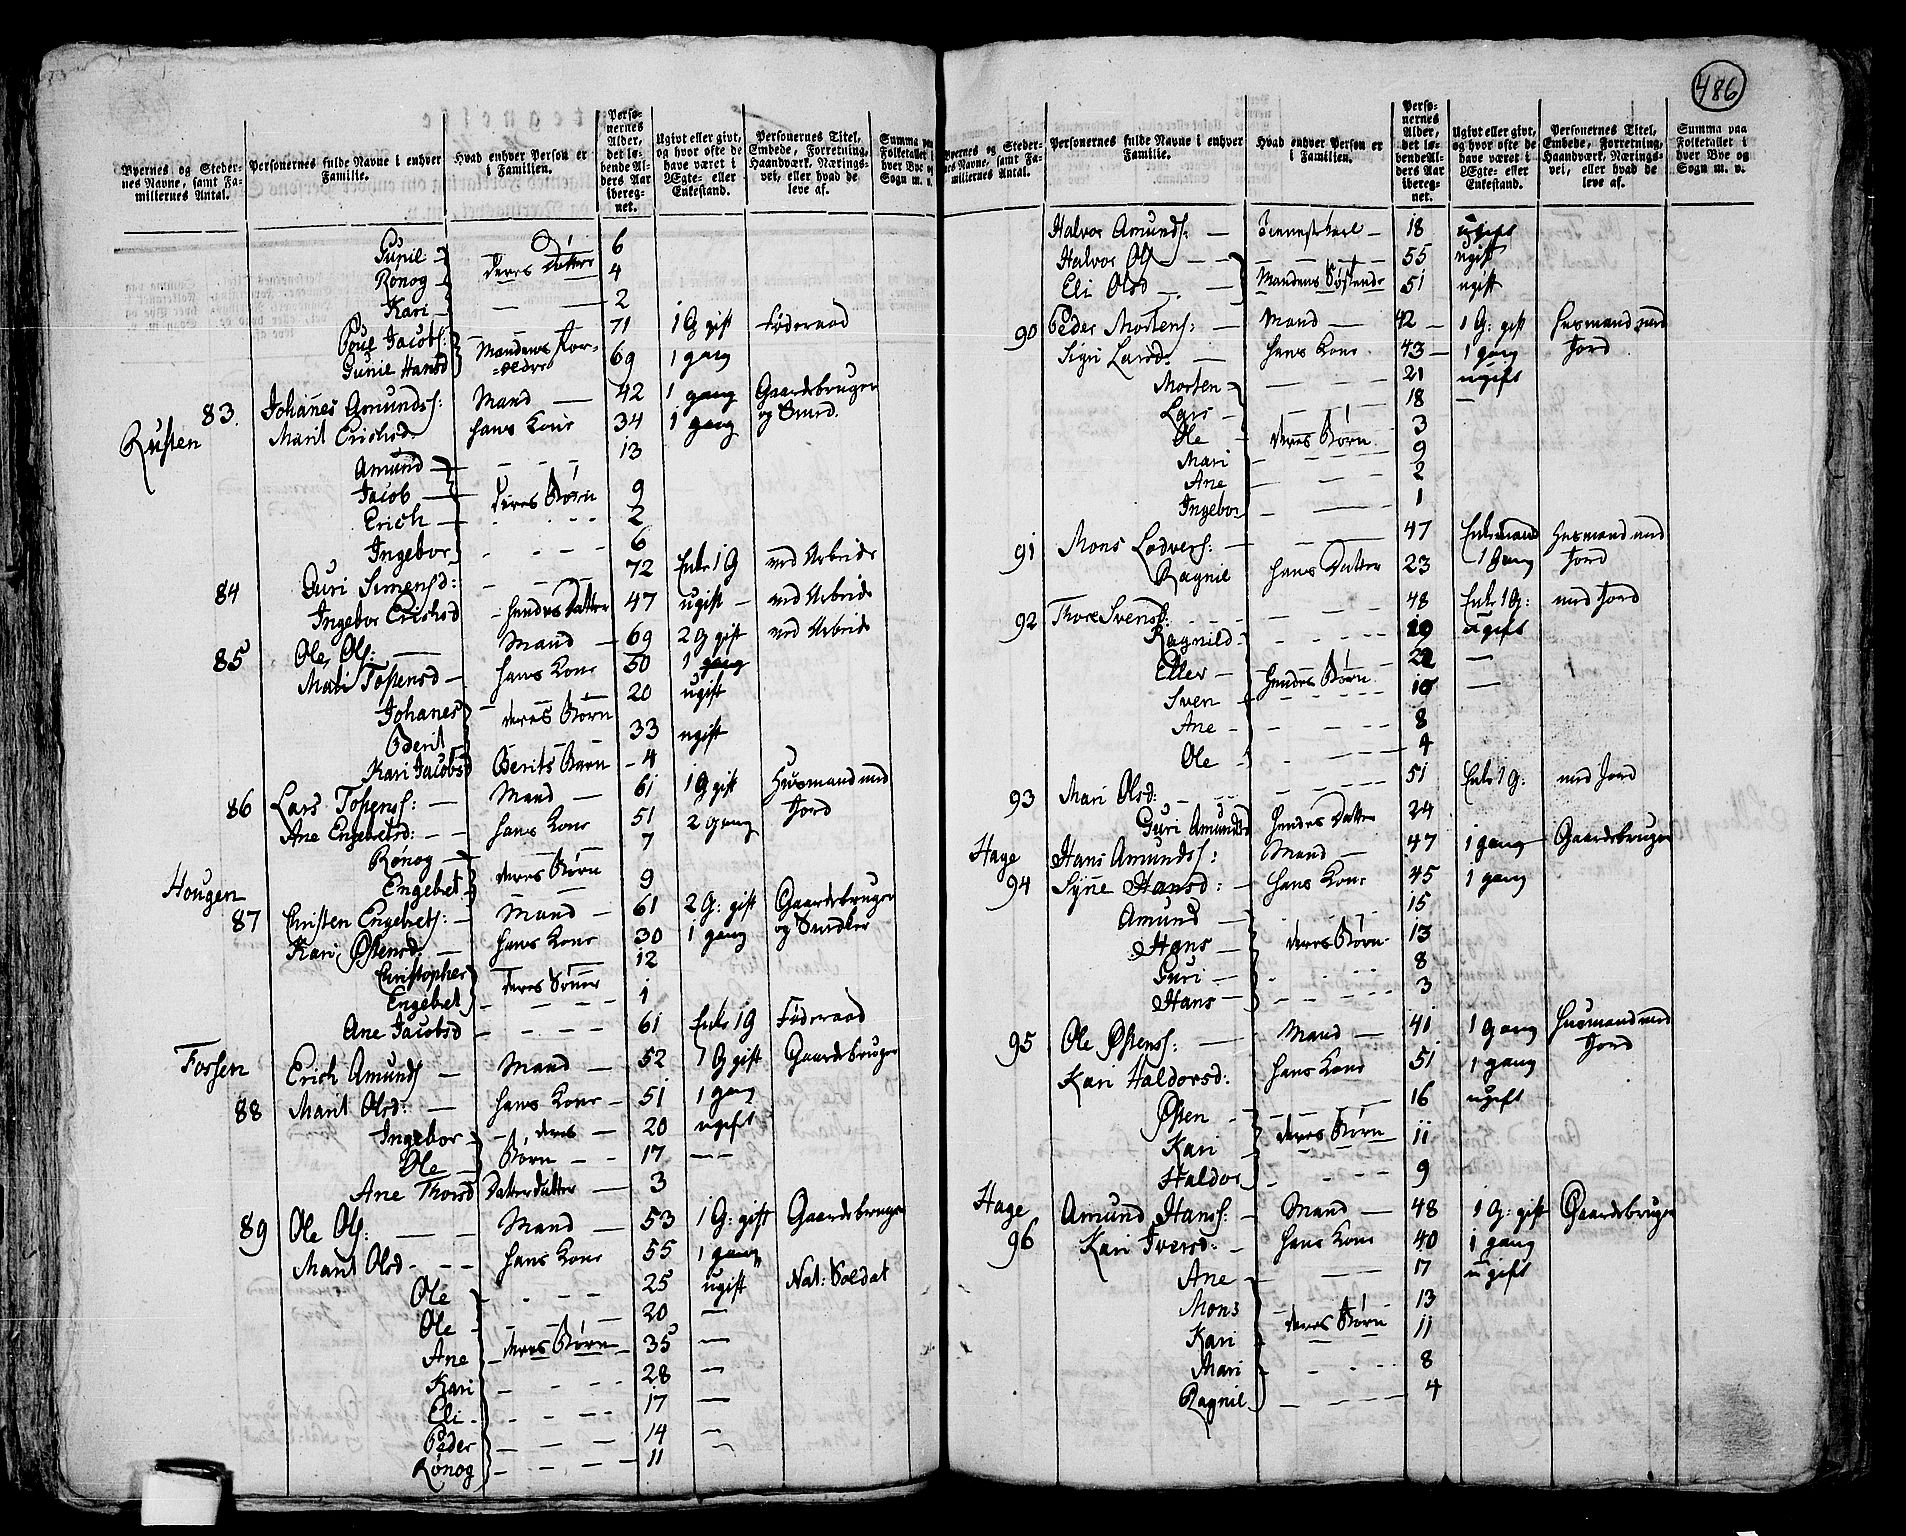 486
Byernes og Steder-
nes Navne, samt Fa-
miliernes Antal.
Personernes fulde Navne i enhver
Familie.
Hvad enhver Person er
i Familien.
Perso-
nernes
Alder,
det lø-
bende Al-
ders Aar
ibereg-
net.
Ugivt eller givt,
og hvor ofte de
have været i
Ægte- eller
Enkestand.
Personernes Titel,
Embede, Forretning,
Haandværk, Nærings-
vei, eller hvad de
leve af.
Summa paa
Folketallet i
hver Bye og
Sogn m. v.
Gunil 6
Rønog deres Døttre 4
Kari — — 2
Poul Jacobs: Mandens For- 71 1 G gift Føderaad
Gunil Hansd =ældre 69 1 gang
83. Johannes Amunds: Mand — 42 1 gang Gaardsbruger
Rusten Marit Erichsd. hans Kone 34 1 gang og Smed.
Amund — — — 13
Jacob — deres Børn 9
Erich — 2
Ingebor — — — 6
84 Guri Simensd: — — — 72 Enke 1 G ved Arbeide
Ingebor Erichsd hendes Datter 47 ugift — ved Arbeide
85 Ole Ols: — Mand — 69 2 G gift ved Arbeide
Mari Tostensd — hans Kone 50 1 gang
Johanes deres Børn 20 ugift
Berit 33 ugift
Kari Jacobsd Berits Barn — 4
86 Lars Tostens: — Mand — 61 1 G gift Huusmand med
Ane Engebretsd: — — hans Kone 51 2 gang Jord
Rønog — deres Børn 7
Engebret 9
Hougen
87 Christen Engebrets: — Mand — 61 2 G: gift Gaardsbruger
Kari Østensd — hans Kone 30 1 gang og Snedker
Christopher deres Sønner 12
Engebret — — — 1
Ane Jacobsd — — — 61 Enke 1 G Føderaad
Fossen Erich Amunds — Mand — 52 1 G gift Gaardsbruger
88 Marit Olsd: — hans Kone — 51 1 gang
Ingebor — deres — 20 ugift
Ole — Børn — — 17 —
Ane Thorsd Datterdatter — 3
89 Ole Ols: — — Mand — 53 1 G: gift Gaardsbruger
Marit Olsd — — hans Kone 55 1 gang
Ole 25 ugift Nat: Soldat
Ole — 20 —
Ane — deres Børn — 35 —
Kari — — — 28 —
Eli — — — 17 —
Peder — — — 14 —
Rønog — — — 11
Byernes og Steder-
nes Navne, samt Fa-
miliernes Antal.
Personernes fulde Navne i enhver
Familie.
Hvad enhver Person er
i Familien.
Perso-
nernes
Alder,
det lø-
bende Al-
ders Aar
ibereg-
net.
Ugivt eller givt,
og hvor ofte de
have været i
Ægte- eller
Enkestand.
Personernes Titel,
Embede, Forretning,
Haandværk, Nærings-
vei, eller hvad de
leve af.
Summa paa
Folketallet i
hver Bye og
Sogn m. v.
Halvor Amunds: — Tienestkarl — 18 ugift
Halvor Ols — — — 55 ugift
Eli Olsd — Mandens Søskende 51 ugift
90 Peder Mortens: — Mand — 42 — 1 G: gift Husmand med
Sigri Larsd: — hans Kone 43 — 1 gang Jord
Morten — — — 21 ugift
Lars — — — 18 —
Ole — deres Børn 3
Mari — — — 9
Ane — — — 2
Ingebor — — — 1
91 Mons Lodvers: — 47 Enkemand Husmand med
Ragnil hans Datter 23 1 Gang Jord
92 Thore Svensd: — — 48 Enke 1 G: med Jord
Ragnild — — — 19 ugift
Eller — hendes Børn 22 —
Sven — 10 —
Ane — — — 8
Ole — — — 4
93 Mari Olsd: — — — 51 Enke 1 G: med Jord
Guri Amundsd hendes Datter 24
Hage Hans Amunds: Mand — 47 1 gang Gaardsbruger
94 Synne Hansd: — hans Kone 45 1 gang
Amund — 15
Hans — deres Børn 13
Guri — — — 8
Hans — — — 3
95 Ole Østens: — Mand — 41 1 gang Husmand med
Kari Haldorsd: hans Kone 51 1 gang Jord
Østen — — — 16 ugift
Kari — deres Børn 11
Haldor — — — 9
Hage Amund Hans: — Mand — 48 1 G: gift Gaardsbruger
96 Kari Iversd: — hans Kone 40 1 gang
Ane — — 17 ugift
Mons — — — 13
Kari deres Børn 11
Mari — — — 8
Ragnil — — — 4